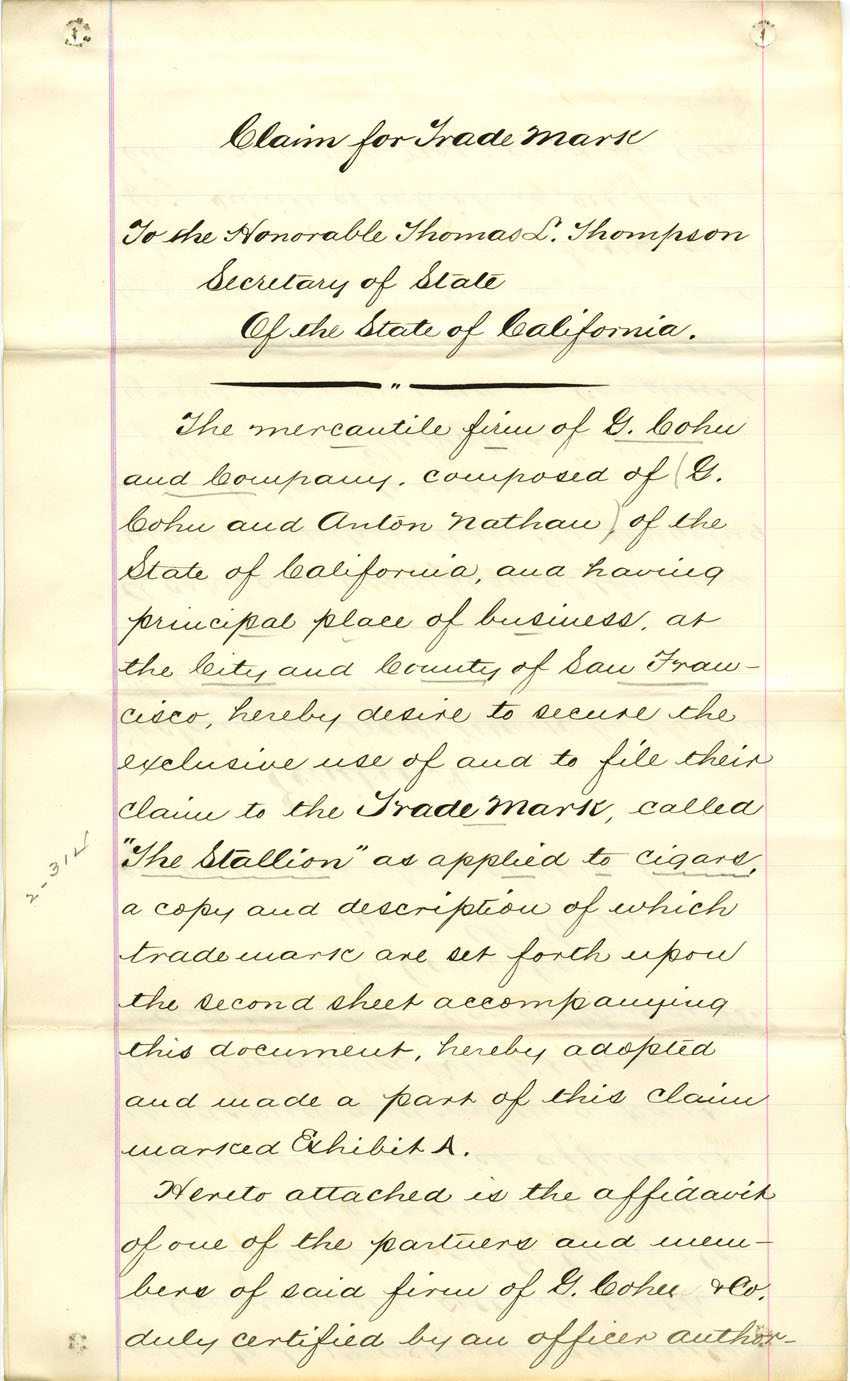 Claim for Trade Mark
To the Honorable Thomas L. Thompson
Secretary of State
Of the State of California.
"
The mercantile firm of G. Cohn
and Company. composed of (G.
Cohn and Anton Nathan) of the
State of California, and having
principal place of business, at
the City and County of San Fran-
cisco, hereby desire to secure the
exclusive use of and to file their
claim to the Trade Mark, called
"The Stallion" as applied to cigars,
a copy and description of which
trade mark are set forth upon
the second sheet accompanying
this document, hereby adopted
and made a part of this claim
marked Exhibit A.
Hereto attached is the affidavit
of one of the partners and mem-
bers of said firm of G. Cohn & Co.
duly certified by an officer author-